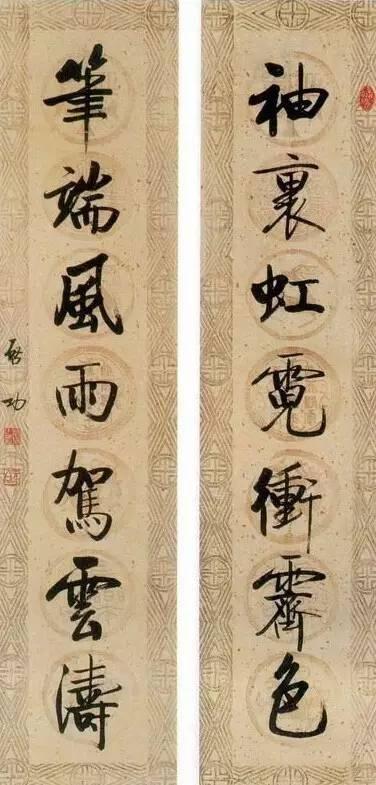 袖裏虹霓衝霽色
筆端風雨駕雲濤
啟功